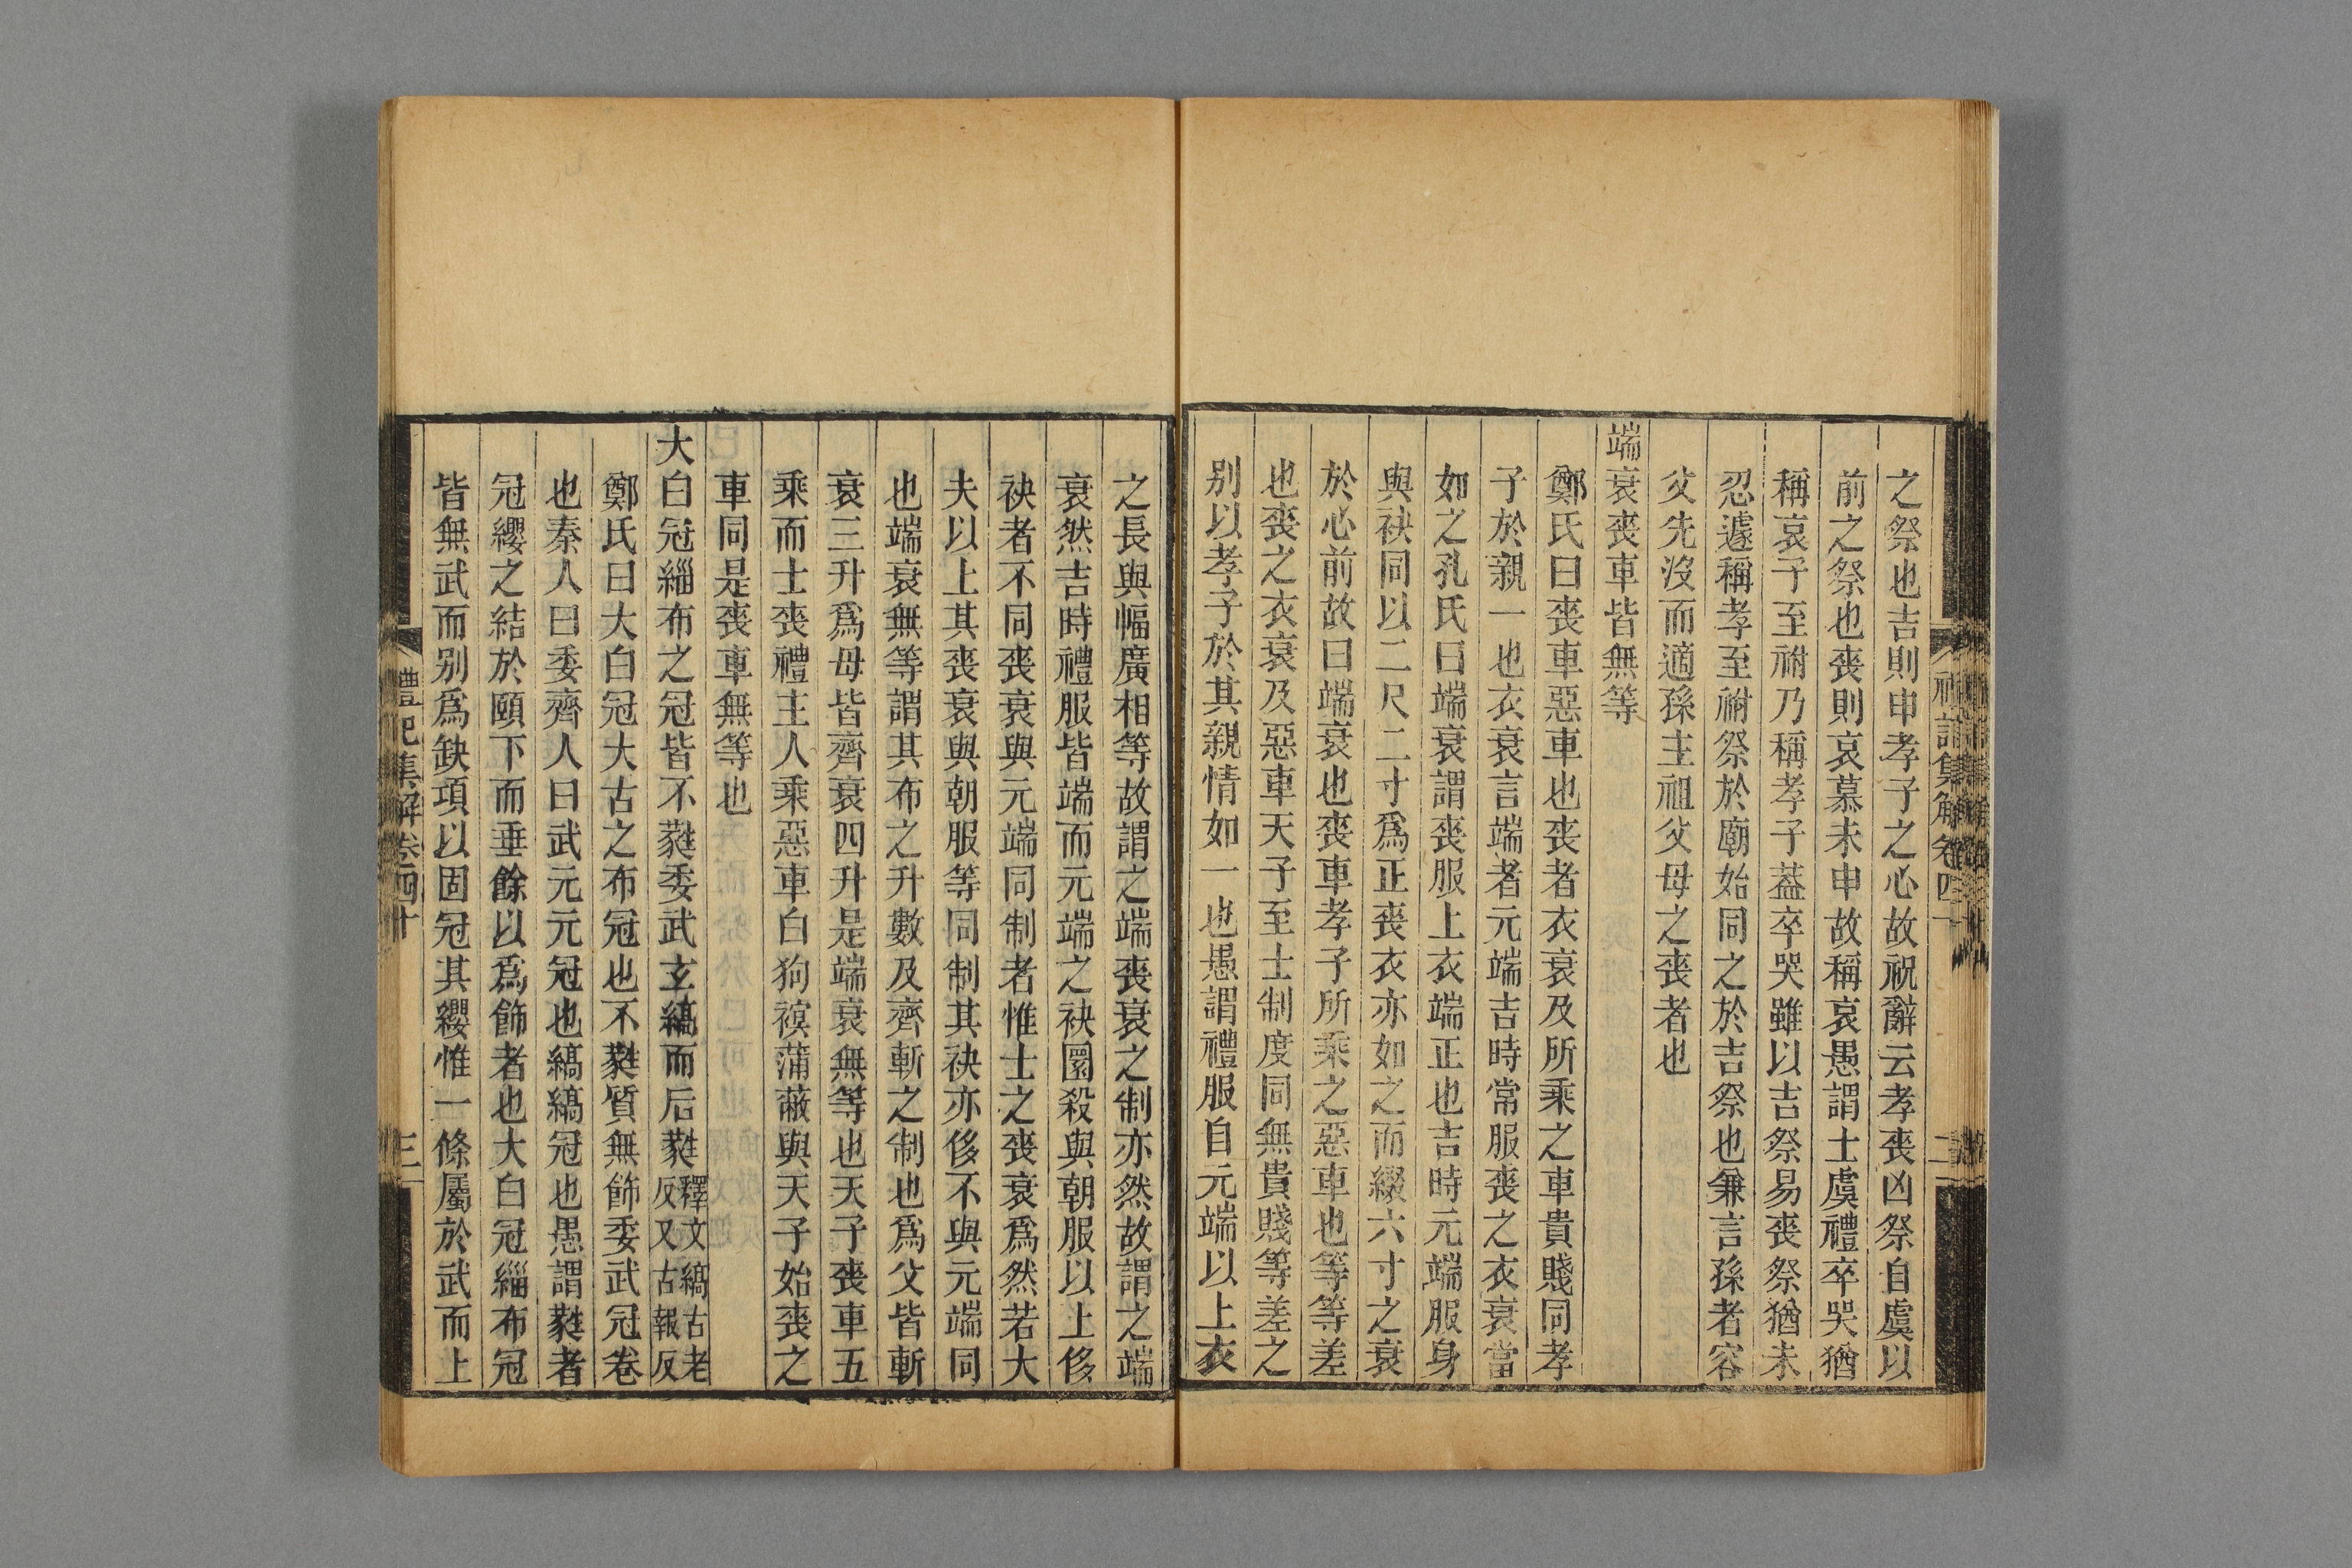 之祭也吉則申孝子之心故祝辭云孝喪凶祭自虞以
前之祭也喪則哀慕未申故稱哀愚謂士虞禮卒哭猶
稱哀子至祔乃稱孝子葢卒哭雖以吉祭易喪祭猶未
忍遽稱孝至祔祭於廟始同之於吉祭也兼言孫者容
父先沒而適孫主祖父母之喪者也
端衰喪車皆無等
鄭氏曰喪車惡車也喪者衣衰及所乘之車貴賤同孝
子於親一也衣衰言端者元端吉時常服喪之衣衰當
如之孔氏曰端衰謂喪服上衣端正也吉時元端服身
與袂同以二尺二寸爲正喪衣亦如之而綴六寸之衰
於心前故曰端衰也喪車孝子所乘之惡車也等等差
也喪之衣衰及惡車天子至士制度同無貴賤等差之
別以孝子於其親情如一也愚謂禮服自元端以上衣
之長與幅廣相等故謂之端喪衰之制亦然故謂之端
衰然吉時禮服皆端而元端之袂圜殺與朝服以上侈
袂者不同喪衰與元端同制者惟士之喪衰爲然若大
夫以上其喪衰與朝服等同制其袂亦侈不與元端同
也端衰無等謂其布之升數及齊斬之制也爲父皆斬
衰三升爲母皆齊衰四升是端衰無等也天子喪車五
乘而士喪禮主人乘惡車白狗䙪蒲蔽與天子始喪之
車同是喪車無等也
大白冠緇布之冠皆不蕤委武玄縞而后蕤釋文縞古老反又古報反
鄭氏曰大白冠大古之布冠也不蕤質無飾委武冠卷
也秦人曰委齊人曰武元元冠也縞縞冠也愚謂蕤者
冠纓之結於頤下而垂餘以爲飾者也大白冠緇布冠
皆無武而別爲缺項以固冠其纓惟一條屬於武而上
禮記集解卷四十
三